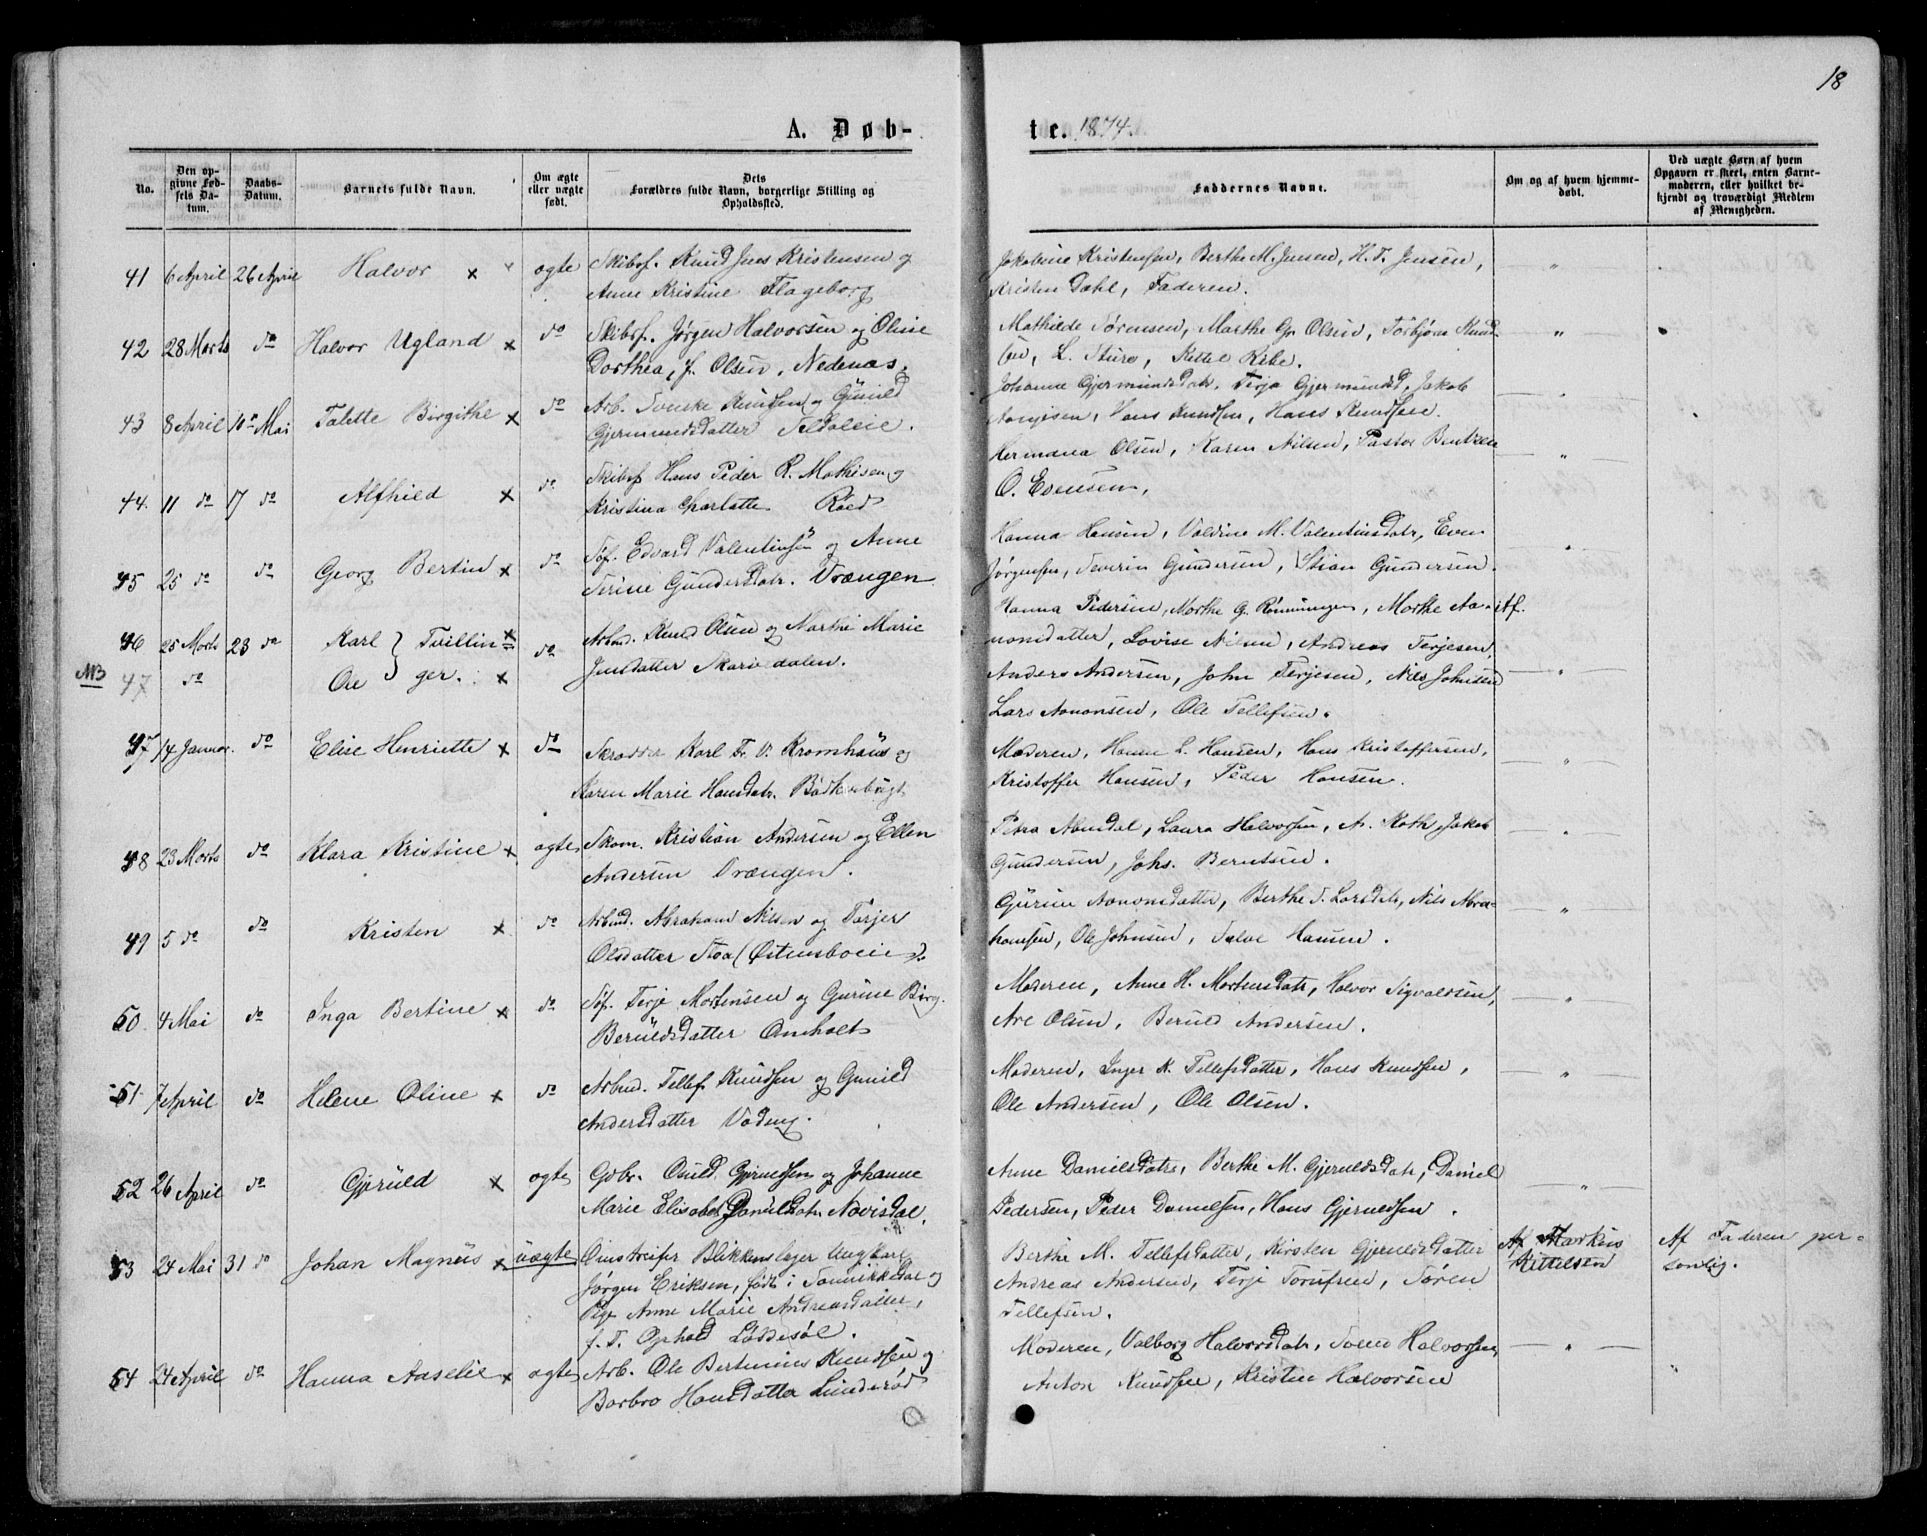 18
A. Døb-
te. 1874.
No.
Den op-
givne Fød-
sels Da-
tum.
Daabs-
Datum.
Barnets fulde Navn.
Om ægte
eller uægte
født.
Dets
Forældres fulde Navn, borgerlige Stilling og
Opholdssted.
Faddernes Navne.
Om og af hvem hjemme-
døbt.
Ved uægte Børn af hvem
Opgaven er skeet, enten Barne-
moderen, eller hvilket be-
kjendt og troværdigt Medlem
af Menigheden.
41 6 April 26 April Halvor x ogte Skibsf. Knud Jens Kristensen og
Anne Kristine Flageborg
Jakobine Kristensen, Berthe M. Jensen, H. T. Jensen, "
Kristen Dahl, Faderen.
42 28 Marts do Halvor Ugland x do Skibsf. Jørgen Halvorsen og Oline
Dorthea, f. Olsen, Nedenæs.
Mathilde Sørensen, Marthe Gr. Olsen, Torbjørn Knud- "
sen, L. Sture, Kittel Ribe.
43 8 April 10de Mai Talette Birgithe x do Arb. Svenske Knudsen og Gunild
Gjermundsdatter
Johanne Gjermundsdatr. Terje Gjermunds., Jakob
Hans Knudsen, Hans Knudsen.
44. 11 do 17 do Alfhild x do Skibsf Hans Peder R. Mathisen og
Kristina Charlotte Røed
Hermana Olsen, Karen Nilsen, Pastor Bentzen "
O. Evensen,
45 25 do do Georg Bertin x do Søf. Edvard Valentinsen og Anne
Serine Gundersdatr. Vrængen
Hanna Hansen, Valdine M. Valentinsdatr, Even "
Jørgensen, Severin Gundersen, Stian Gundersen.
46 25 Marts 23 do Karl } Tvillin= x do Arbmd. Knud Olsen og Marthe Marie
NB 47 do Ole } ger. x Jensdatter Skarie dalen.
Hanna Pedersen, Marthe G. Rønningen, Marthe Aa- Af.
nonsdatter, Lovise Nilsen, Andreas Terjesen,
Anders Andersen, John Terjesen, Nils Johnsen "
Lars Aanonsen, Ole Tellefsen.
47 14 Januar. do Elise Henriette x do Skrædder Karl Fr. V. Kromhaus og
Karen Marie Hansdatr. Bødkerbugt
Moderen, Hanne L. Hansen, Hans Kristoffersen, "
Kristoffer Hansen, Peder Hansen.
48 23 Marts do Klara Kristine x ogte Skom. Kristian Andersen og Ellen
Andersen Vrængen.
Petra Abendal, Laura Halvorsen, A. Roth, Jakob "
Gundersen, Johs. Berntsen.
49 5 do do Kristen x do Arbmd. Abraham Nilsen og Torjer
Olsdatter Stoa (Østensboeie).
Gurine Aanonsdatter, Berthe T. Larsdatr, Nils Abra- "
hamsen, Ole Johnsen, Salve Hansen.
50. 4 Mai do Inga Bertine x do Søf. Terje Mortensen og Gurine Birg.
Beruldsdatter Omholt
Moderen, Anne H. Mortensdatr, Halvor Sigvaldsen, "
Are Olsen, Beruld Andersen.
51 7 April do Helene Oline x do Arbmd. Tellef Knudsen og Gunild
Andersdatter
Moderen, Inger K. Tellefsdatter, Hans Knudsen, "
Ole Andersen, Ole Olsen.
52 26 April do Gjeruld x ogte Gdbr. Ouild Gjeruldsen og Johanne
Marie Elisabet Danielsdatr. Navisdal.
Anne Danielsdatr, Berthe M. Gjeruldsdatr, Daniel "
Pedersen, Peder Danielsen, Hans Gjeruldsen.
53 24 Mai 31 do Johan Magnus x uægte Omstreifer Blikkenslager Ungkarl
Jørgen Eriksen, født i Sannikedal og
Pige Anne Marie Andreasdatter,
f. T. Ophold Løddesøl.
Berthe M. Tellefsdatter, Kirsten Gjeruldsdatter
Andreas Andersen, Terje Torufsen, Søren
Tellefsen.
Af Markus
Kittelsen
Af Faderen per-
sonlig.
54 24 April do Hanna Aaselie x ogte Arb. Ole Bertinius Knudsen og
Barbro Hansdatter Linderød
Moderen, Valborg Halvorsdatr, Svend Halvorsen, "
Anton Knudsen, Kristen Halvorsen